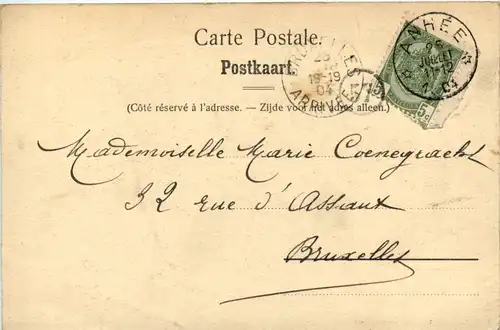 Carte Postale.
Postkaart.
(Côté réservé à l'adresse. – Zijde voor het adres alleen.)
ANHÉE
JUILLET
04
BRUXELLES
18-19
04
ARRIVÉE
Mademoiselle Marie Coenegracht
32 rue d'Assaut
Bruxelles